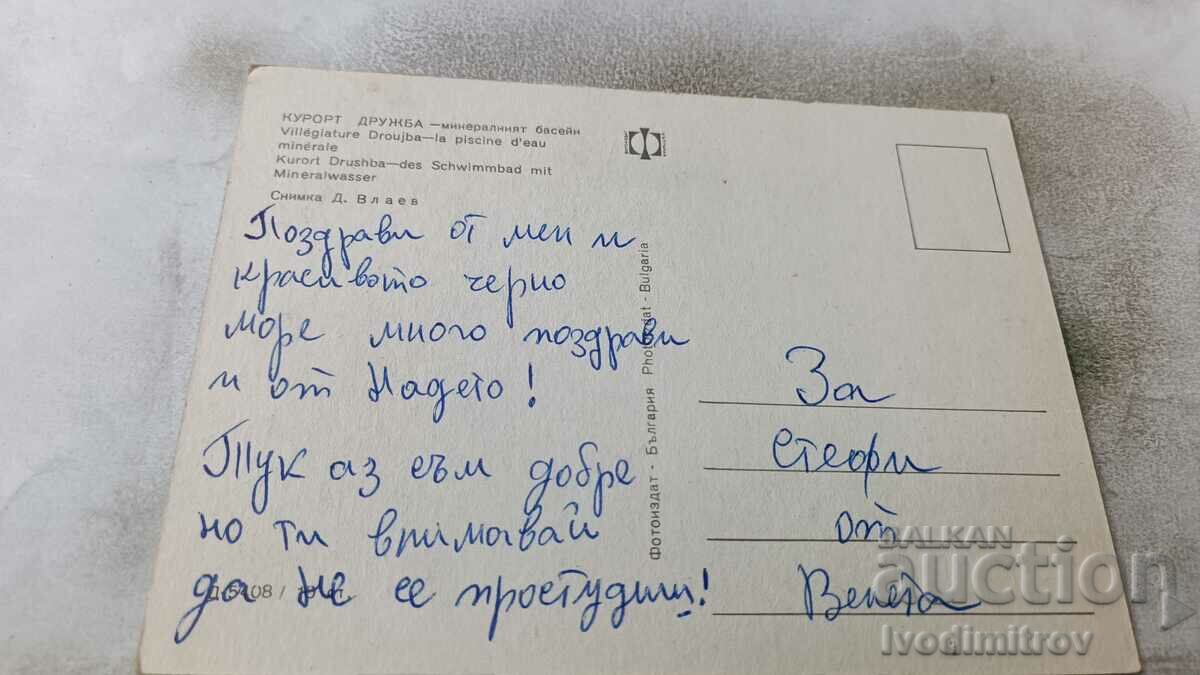 КУРОРТ ДРУЖБА — минералният басейн
Villégiature Droujba — la piscine d'eau
minérale
Kurort Drushba — des Schwimmbad mit
Mineralwasser
Снимка Д. Влаев
Поздрави от мен и
красивото черно
море много поздрави
и от Надето!
Тук аз съм добре
но ти внимавай
да не се простудиш!
Фотоиздат - България Photoizdat - Bulgaria
За
Стефи
от
Венета
BALKAN
auction
Ivodimitrov